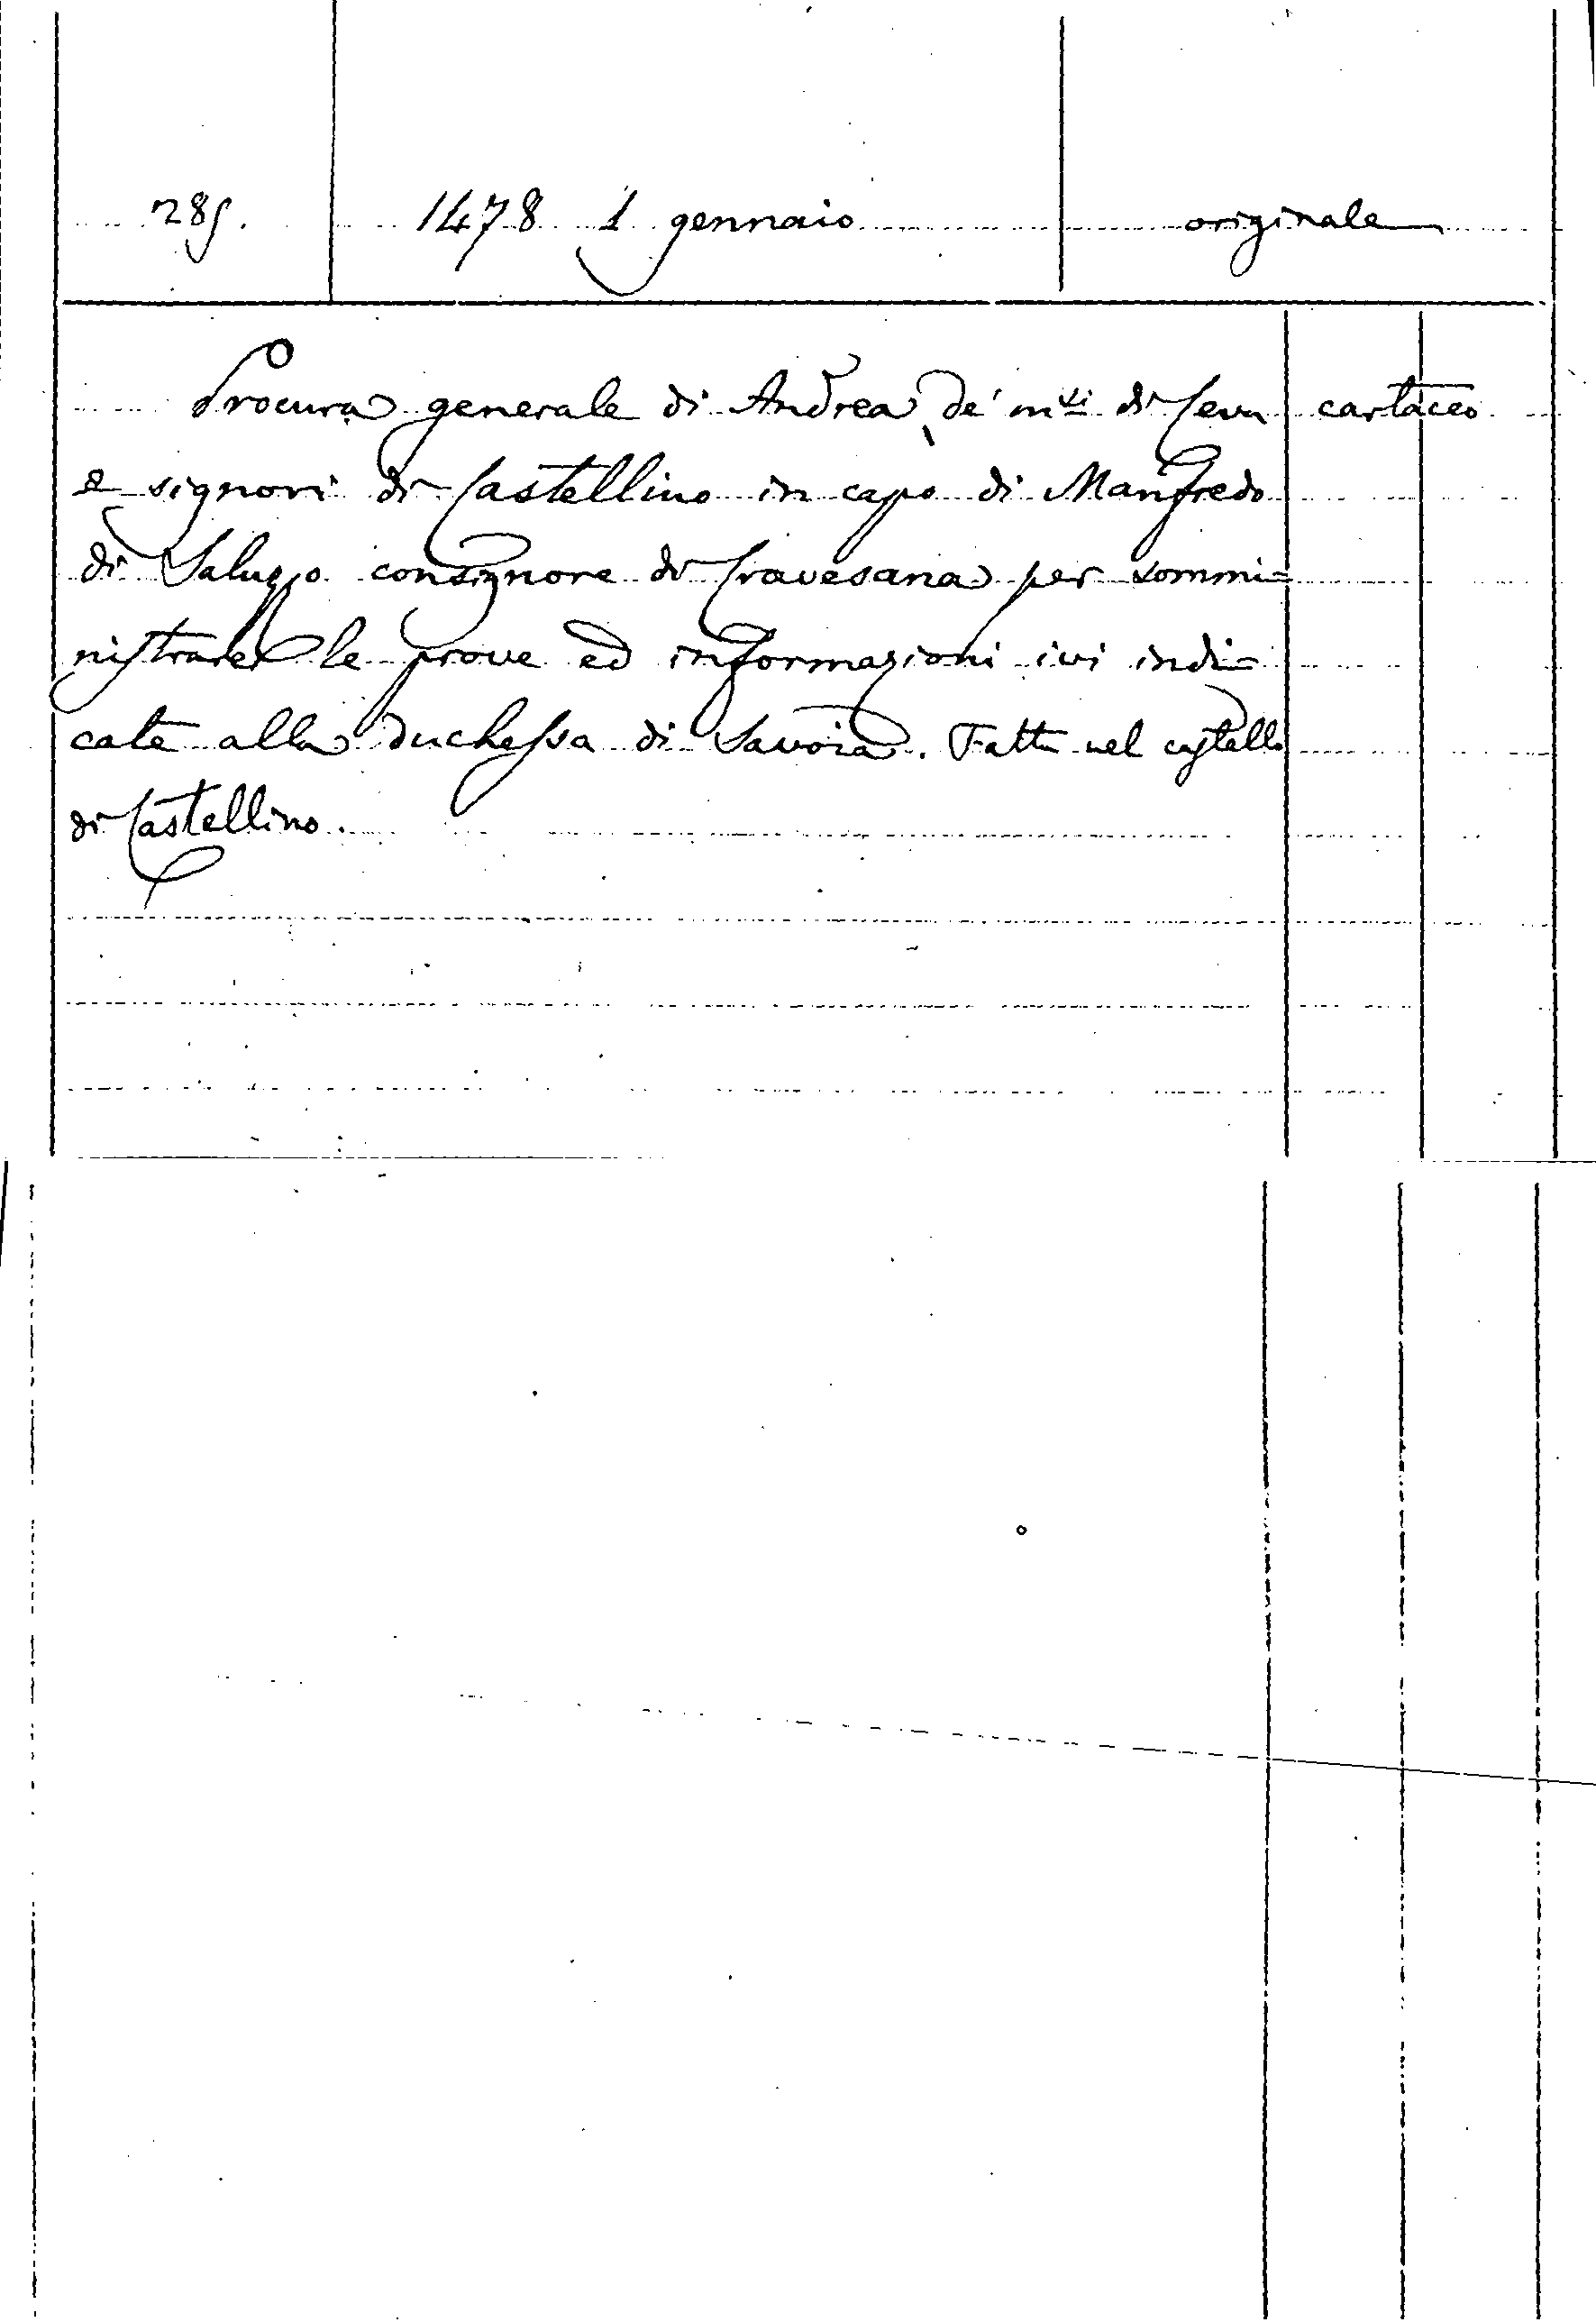 285. 1478 1 gennaio originale
Procura generale di Andrea de' m.si di Ceva cartaceo
e signori di Castellino in capo di Manfredo
di Saluzzo consignore di Cravesana per sommi=
nistrare le prove ed informazioni ivi indi=
cate alla duchessa di Savoia. Fatta nel castello
di Castellino.